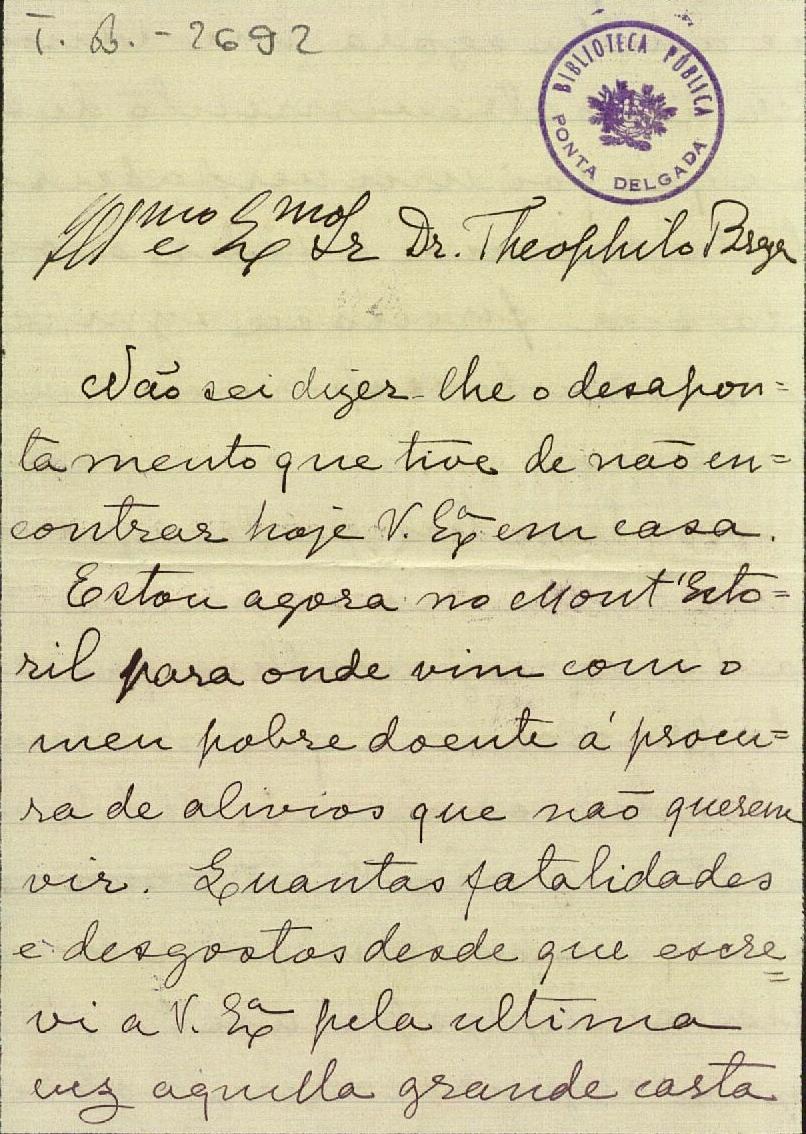 T. B. - 2692
BIBLIOTECA PÚBLICA
PONTA DELGADA
Ill.mo e Ex.mo Sr. Dr. Theophilo Braga
Não sei dizer-lhe o desapon=
tamento que tive de não en=
contrar hoje V. Exª em casa.
Estou agora no Mont'Esto=
ril para onde vim com o
meu pobre doente á procu=
ra de alivios que não querem
vir. Quantas fatalidades
e desgostos desde que escre=
vi a V. Exª pela ultima
vez aquella grande carta